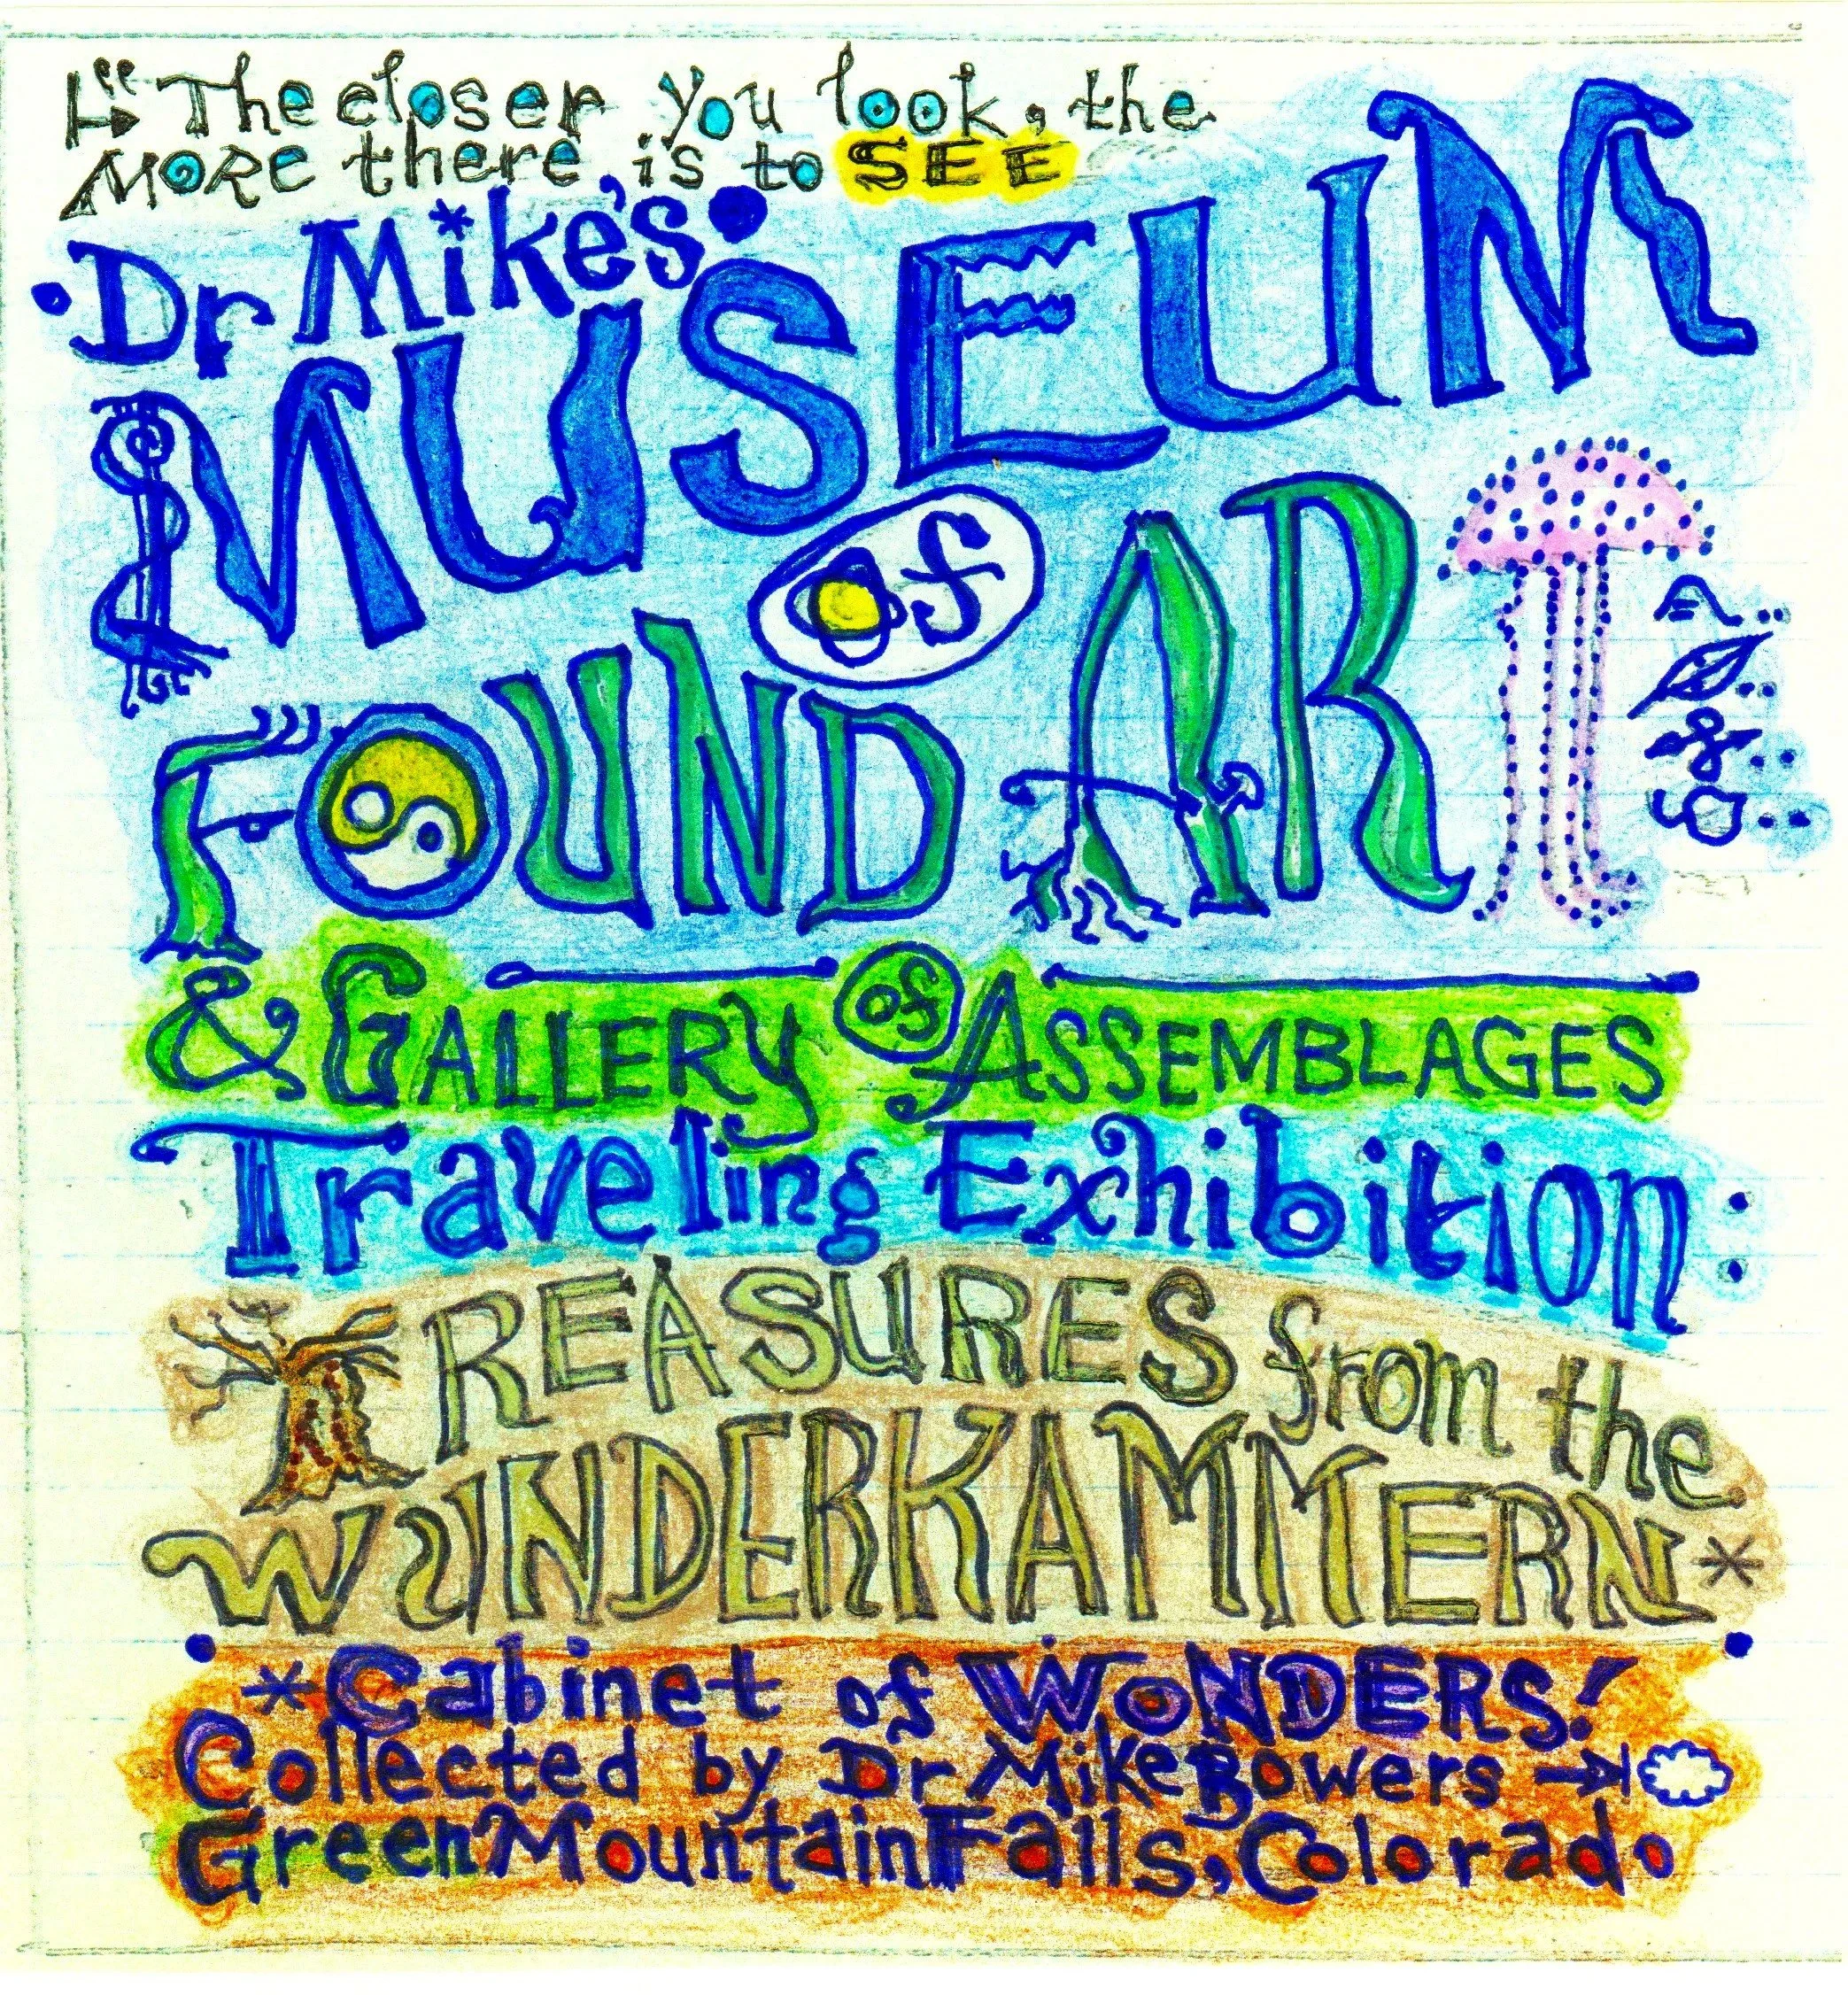 "The closer you look, the
MORE there is to SEE
Dr Mike's
MUSEUM
of
FOUND ART
& GALLERY of ASSEMBLAGES
Traveling Exhibition:
TREASURES from the
WUNDERKAMMERN*
*Cabinet of WONDERS!
Collected by Dr Mike Bowers
Green Mountain Falls, Colorado